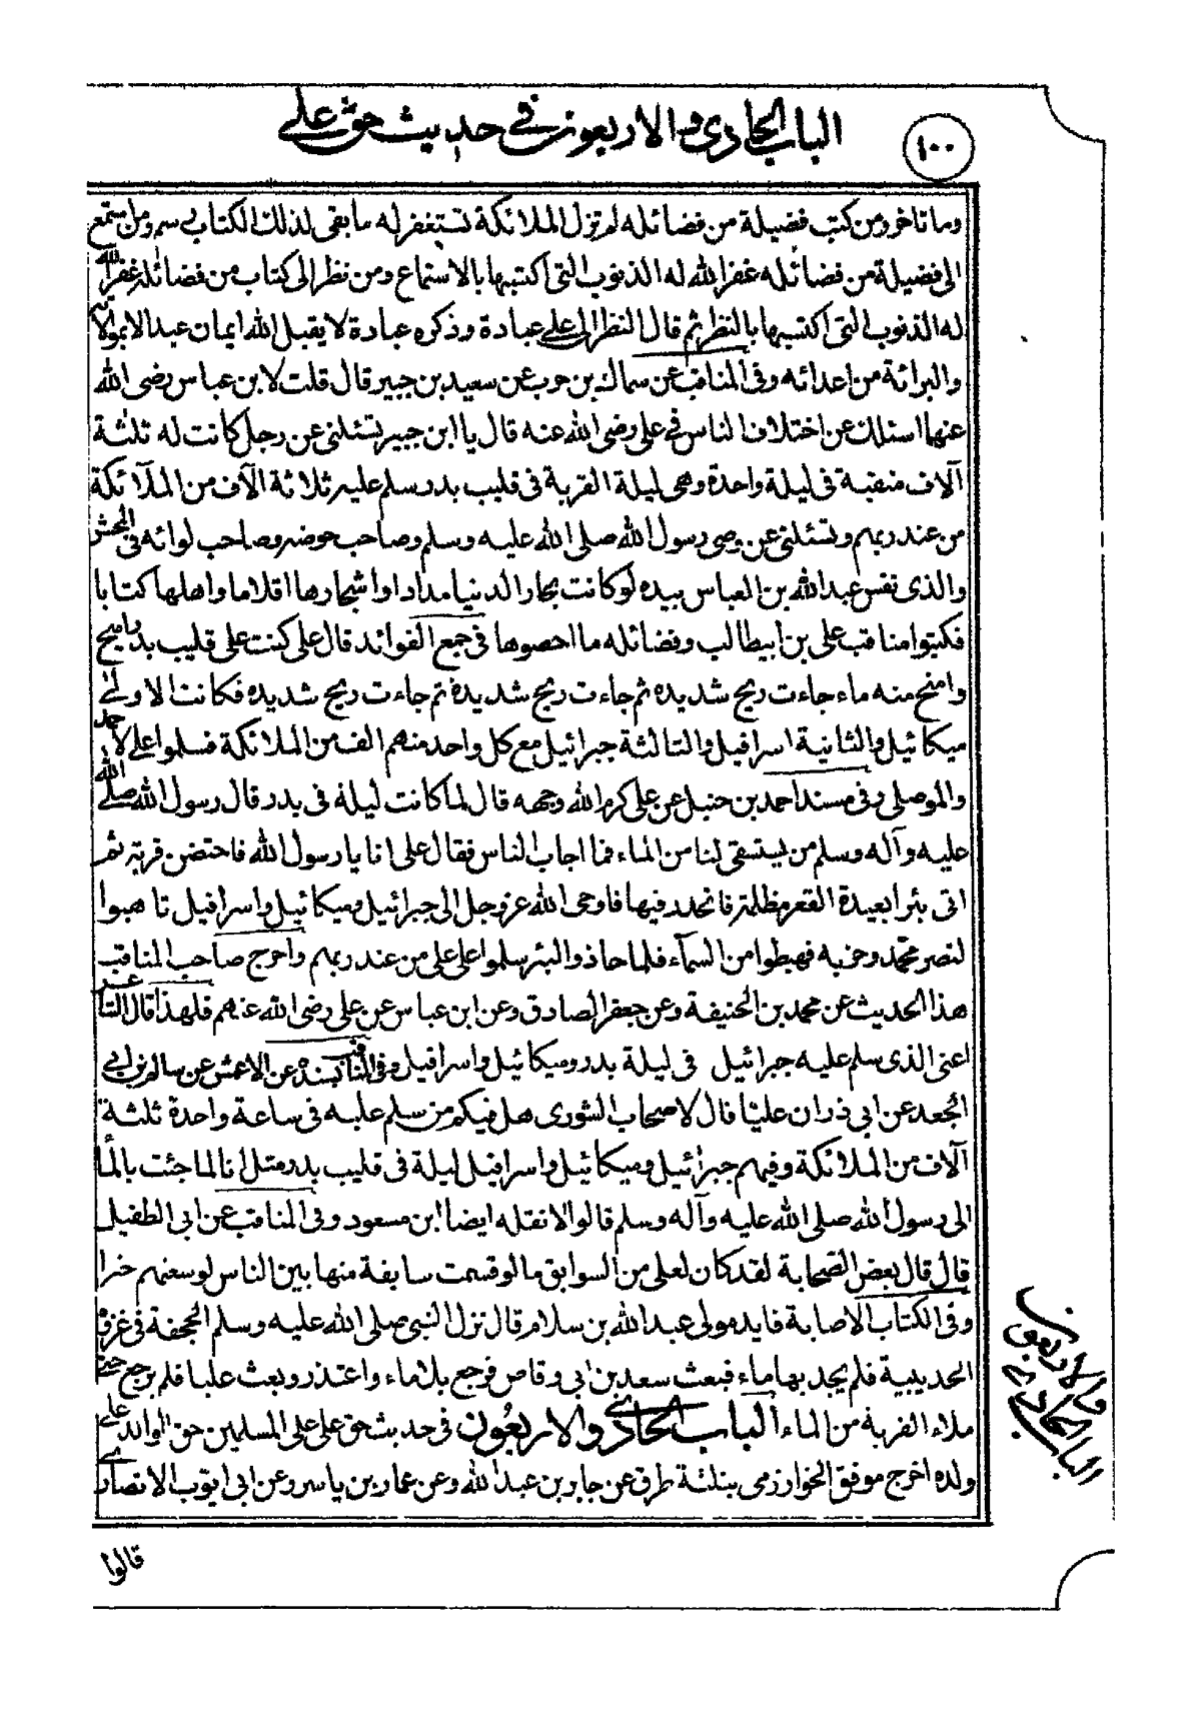 الباب الحادى والاربعون فى حديث حق على
١٠٠
وما تاخر ومن كتب فضيلة من فضائله لم تزل الملائكة تستغفر له ما بقى لذلك الكتاب رسم ومن استمع
الى فضيلة من فضائله غفر الله له الذنوب التى اكتسبها بالاستماع ومن نظر الى كتاب من فضائله غفر الله
له الذنوب التى اكتسبها بالنظر ثم قال النظر الى على عبادة وذكره عبادة لا يقبل الله ايمان عبد الا بولايته
والبرائة من اعدائه وفى المناقب عن سماك بن حرب عن سعيد بن جبير قال قلت لابن عباس رضى الله
عنهما اسئلك عن اختلاف الناس فى على رضى الله عنه قال يا ابن جبير تسئلنى عن رجل كانت له ثلثة
آلاف منقبة فى ليلة واحدة وهى ليلة القربة فى قليب بدر سلم عليه ثلاثة آلاف من الملآئكة
من عند ربهم وتسئلنى عن وصى رسول الله صلى الله عليه وسلم وصاحب حوضه وصاحب لوائه فى المحشر
والذى نفس عبد الله بن العباس بيده لو كانت بحار الدنيا مدادا واشجارها اقلاما واهلها كتابا
فكتبوا مناقب على بن ابيطالب وفضائله ما احصوها فى جمع الفوائد قال على كنت على قليب بدر اميح
وامنح منه ماء جاءت ريح شديده ثم جاءت ريح شديدة ثم جاءت ريح شديده فكانت الاولى
ميكائيل والثانية اسرافيل والثالثة جبرائيل مع كل واحد منهم الف من الملائكة فسلموا على لاحمد
والموصلى وفى مسند احمد بن حنبل عن على كرم الله وجهه قال لما كانت ليلة فى بدر قال رسول الله صلى الله
عليه وآله وسلم من يستقى لنا من الماء فما اجاب الناس فقال على انا يا رسول الله فاحتضن قربة ثم
اتى بئرا بعيدة القعر مظلمة فانحدر فيها فاوحى الله عز وجل الى جبرائيل وميكائيل واسرافيل تاهبوا
لنصر محمد وحزبه فهبطوا من السمآء فلما حاذوا البئر سلموا على على من عند ربهم واخرج صاحب المناقب
هذا الحديث عن محمد بن الحنيفة وعن جعفر الصادق وعن ابن عباس عن على رضى الله عنهم فلهذا قال الشاعر
اعنى الذى سلم عليه جبرائيل فى ليلة بدر وميكائيل واسرافيل وفى المناقب بسنده عن الاعمش عن سالم بن ابى
الجعد عن ابى ذر ان عليا قال لاصحاب الشورى هل فيكم من سلم عليه فى ساعة واحدة ثلثة
آلاف من الملائكة وفيهم جبرائيل وميكائيل واسرافيل ليلة فى قليب بدر مثل انا لما جئت بالماء
الى رسول الله صلى الله عليه وآله وسلم قالوا لا نقله ايضا ابن مسعود وفى المناقب عن ابى الطفيل
قال قال بعض الصحابة لقد كان لعلى من السوابق ما لو قسمت سابقة منها بين الناس لوسعتهم خيرا
وفى الكتاب الاصابة فايد مولى عبد الله بن سلام قال نزل النبى صلى الله عليه وسلم الجحفة فى غزوة
الحديبية فلم يجد بها ماء فبعث سعد بن ابى وقاص فرجع بلا ماء واعتذر وبعث عليا فلم يرجع حتى
ملاء القربة من الماء الباب الحادى والاربعون فى حديث حق على على المسلمين حق الوالد على
ولده اخرج موفق الخوارزمى بثلثة طرق عن جابر بن عبد الله وعن عمار بن ياسر وعن ابى ايوب الانصارى
الباب الحادى
والاربعون
قالوا